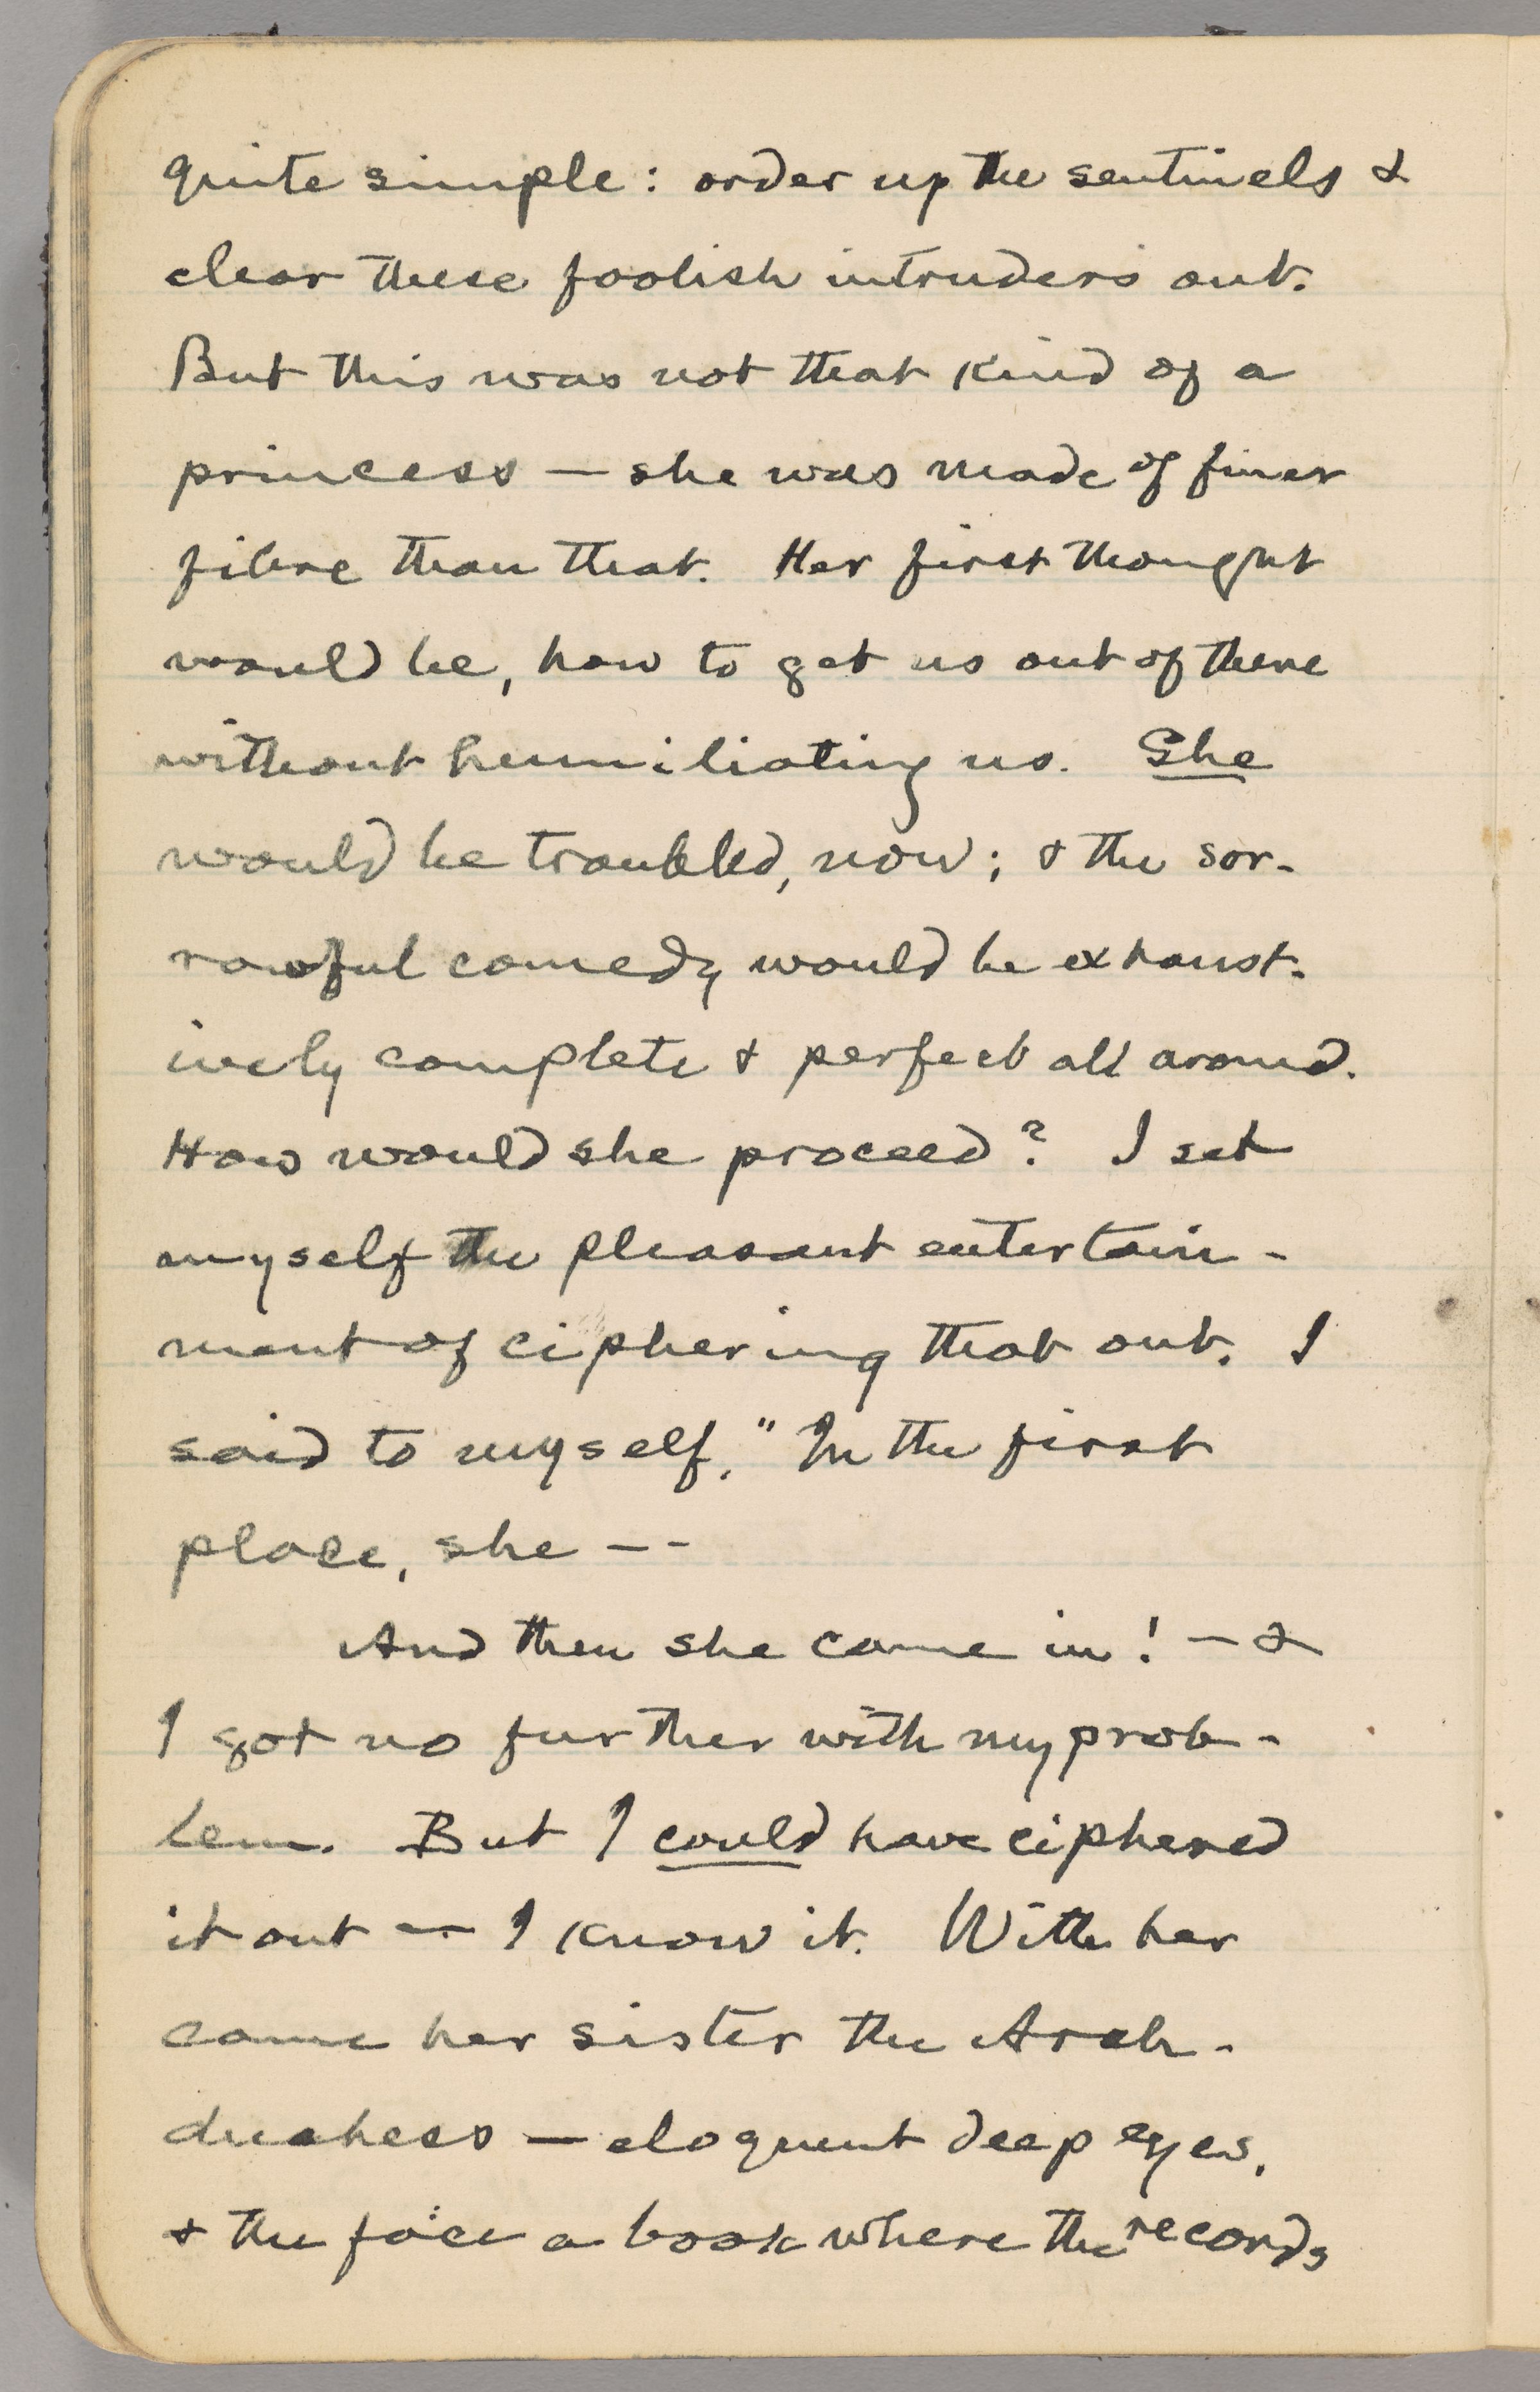 quite simple: order up the sentinels &
clear these foolish intruders out.
But this was not that kind of a
princess — she was made of finer
fibre than that. Her first thought
would be, how to get us out of there
without humiliating us. She
would be troubled, now; & the sor-
rowful comedy would be exhaust-
ively complete & perfect all around.
How would she proceed? I set
myself the pleasant entertain-
ment of ciphering that out. I
said to myself, "In the first
place, she --
And then she came in! — &
I got no further with my prob-
lem. But I could have ciphered
it out — I know it. With her
came her sister the Arch-
duchess — eloquent deep eyes,
& the face a book where the records